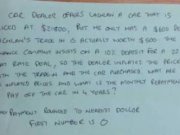 CAR DEALER OFFERS LACHLAN A CAR THAT IS
PRICED AT $21800, BUT HE ONLY HAS A $800
LACHLAN'S TRADE IN IS ACTUALLY WORTH $500. THE
FINANCE COMPANY INSISTS ON A 10% DEPOSIT FOR A 20
FLAT RATE DEAL, SO THE DEALER INFLATES THE PRICES
BOTH THE TRADE IN AND THE CAR PURCHASED. WHAT ARE
INFLATED PRICES AND WHAT IS THE MONTHLY REPAYMENT
PAY OFF THE CAR IN 4 YEARS?
REPAYMENT ROUNDED TO NEAREST DOLLAR
FIRST NUMBER IS 0